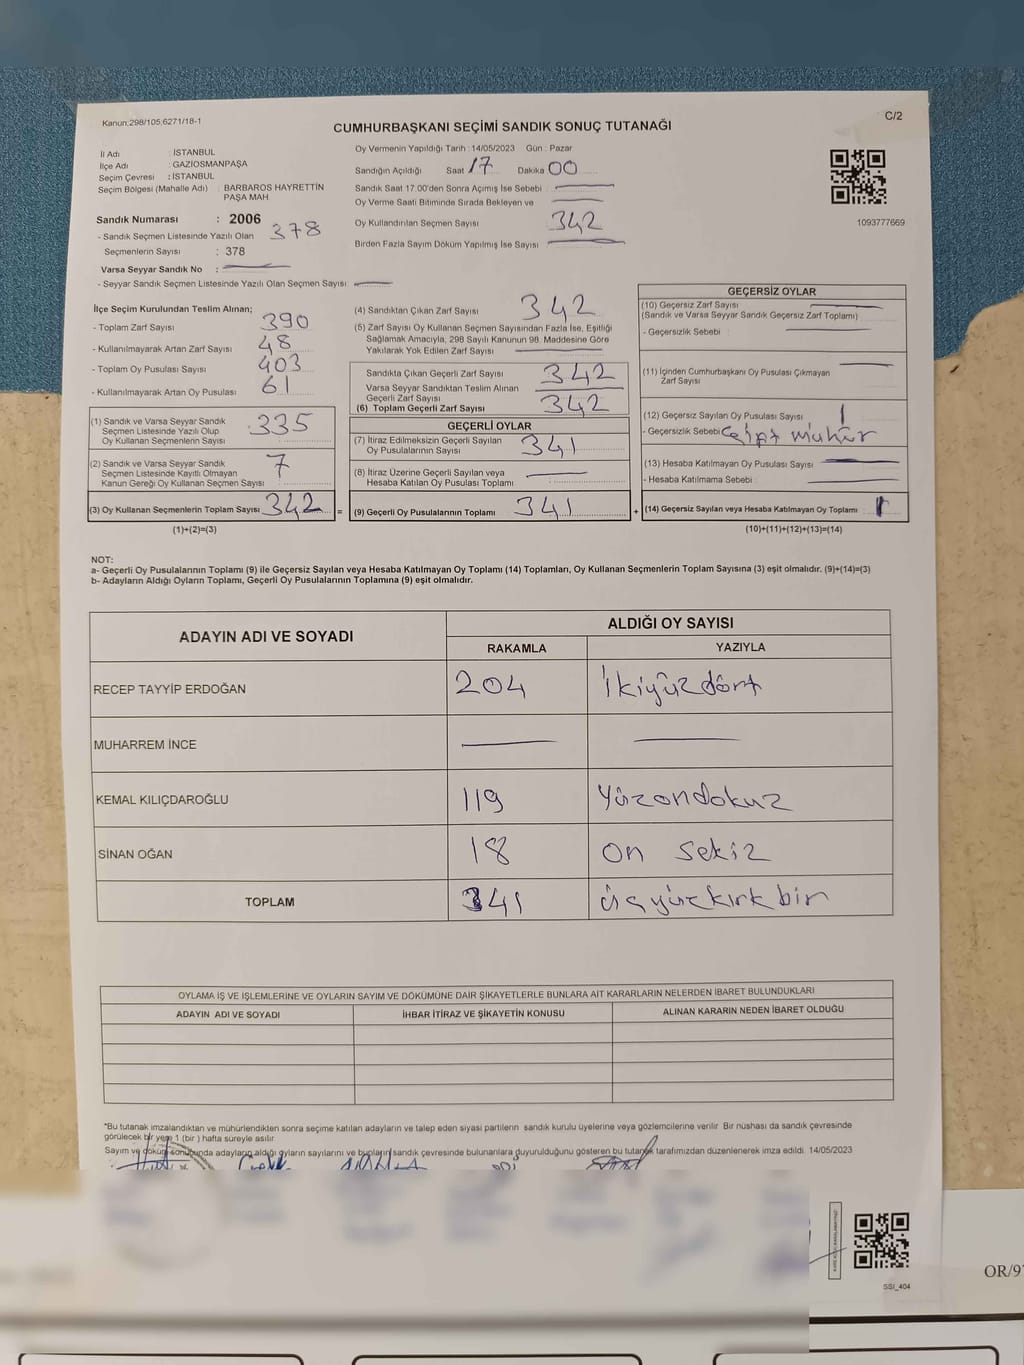 Kanun;298/105,6271/18-1
C/2
CUMHURBAŞKANI SEÇİMİ SANDIK SONUÇ TUTANAĞI
İl Adı : İSTANBUL
İlçe Adı : GAZİOSMANPAŞA
Seçim Çevresi : İSTANBUL
Seçim Bölgesi (Mahalle Adı) : BARBAROS HAYRETTİN
PAŞA MAH
Sandık Numarası : 2006
- Sandık Seçmen Listesinde Yazılı Olan 378
Seçmenlerin Sayısı : 378
Varsa Seyyar Sandık No :
- Seyyar Sandık Seçmen Listesinde Yazılı Olan Seçmen Sayısı:
Oy Vermenin Yapıldığı Tarih : 14/05/2023 Gün : Pazar
Sandığın Açıldığı Saat 17 Dakika 00
Sandık Saat 17.00'den Sonra Açımış İse Sebebi :
Oy Verme Saati Bitiminde Sırada Bekleyen ve
Oy Kullandırılan Seçmen Sayısı 342
Birden Fazla Sayım Döküm Yapılmış İse Sayısı
1093777669
İlçe Seçim Kurulundan Teslim Alınan;
- Toplam Zarf Sayısı 390
- Kullanılmayarak Artan Zarf Sayısı 48
- Toplam Oy Pusulası Sayısı 403
- Kullanılmayarak Artan Oy Pusulası 61
(1) Sandık ve Varsa Seyyar Sandık
Seçmen Listesinde Yazılı Olup
Oy Kullanan Seçmenlerin Sayısı 335
(2) Sandık ve Varsa Seyyar Sandık
Seçmen Listesinde Kayıtlı Olmayan
Kanun Gereği Oy Kullanan Seçmen Sayısı 7
(3) Oy Kullanan Seçmenlerin Toplam Sayısı 342 =
(1)+(2)=(3)
(4) Sandıktan Çıkan Zarf Sayısı 342
(5) Zarf Sayısı Oy Kullanan Seçmen Sayısından Fazla İse, Eşitliği
Sağlamak Amacıyla, 298 Sayılı Kanunun 98. Maddesine Göre
Yakılarak Yok Edilen Zarf Sayısı
Sandıkta Çıkan Geçerli Zarf Sayısı 342
Varsa Seyyar Sandıktan Teslim Alınan
Geçerli Zarf Sayısı
(6) Toplam Geçerli Zarf Sayısı 342
GEÇERLİ OYLAR
(7) İtiraz Edilmeksizin Geçerli Sayılan
Oy Pusulalarının Sayısı 341
(8) İtiraz Üzerine Geçerli Sayılan veya
Hesaba Katılan Oy Pusulası Toplamı
(9) Geçerli Oy Pusulalarının Toplamı 341 +
GEÇERSİZ OYLAR
(10) Geçersiz Zarf Sayısı
(Sandık ve Varsa Seyyar Sandık Geçersiz Zarf Toplamı)
- Geçersizlik Sebebi :
(11) İçinden Cumhurbaşkanı Oy Pusulası Çıkmayan
Zarf Sayısı
(12) Geçersiz Sayılan Oy Pusulası Sayısı 1
- Geçersizlik Sebebi Çift mühür
(13) Hesaba Katılmayan Oy Pusulası Sayısı
- Hesaba Katılmama Sebebi :
(14) Geçersiz Sayılan veya Hesaba Katılmayan Oy Toplamı 1
(10)+(11)+(12)+(13)=(14)
NOT:
a- Geçerli Oy Pusulalarının Toplamı (9) ile Geçersiz Sayılan veya Hesaba Katılmayan Oy Toplamı (14) Toplamları, Oy Kullanan Seçmenlerin Toplam Sayısına (3) eşit olmalıdır. (9)+(14)=(3)
b- Adayların Aldığı Oyların Toplamı, Geçerli Oy Pusulalarının Toplamına (9) eşit olmalıdır.
ADAYIN ADI VE SOYADI
ALDIĞI OY SAYISI
RAKAMLA YAZIYLA
RECEP TAYYİP ERDOĞAN 204 İkiyüzdört
MUHARREM İNCE
KEMAL KILIÇDAROĞLU 119 Yüzondokuz
SİNAN OĞAN 18 on sekiz
TOPLAM 341 üçyüzkırkbir
OYLAMA İŞ VE İŞLEMLERİNE VE OYLARIN SAYIM VE DÖKÜMÜNE DAİR ŞİKAYETLERLE BUNLARA AİT KARARLARIN NELERDEN İBARET BULUNDUKLARI
ADAYIN ADI VE SOYADI İHBAR İTİRAZ VE ŞİKAYETİN KONUSU ALINAN KARARIN NEDEN İBARET OLDUĞU
*Bu tutanak imzalandıktan ve mühürlendikten sonra seçime katılan adayların ve talep eden siyasi partilerin sandık kurulu üyelerine veya gözlemcilerine verilir. Bir nüshası da sandık çevresinde
görülecek bir yere 1 (bir ) hafta süreyle asılır.
Sayım ve döküm sonucunda adayların aldığı oyların sayılarını ve bunların sandık çevresinde bulunanlara duyurulduğunu gösteren bu tutanak tarafımızdan düzenlenerek imza edildi. 14/05/2023
SSI_404
OR/97